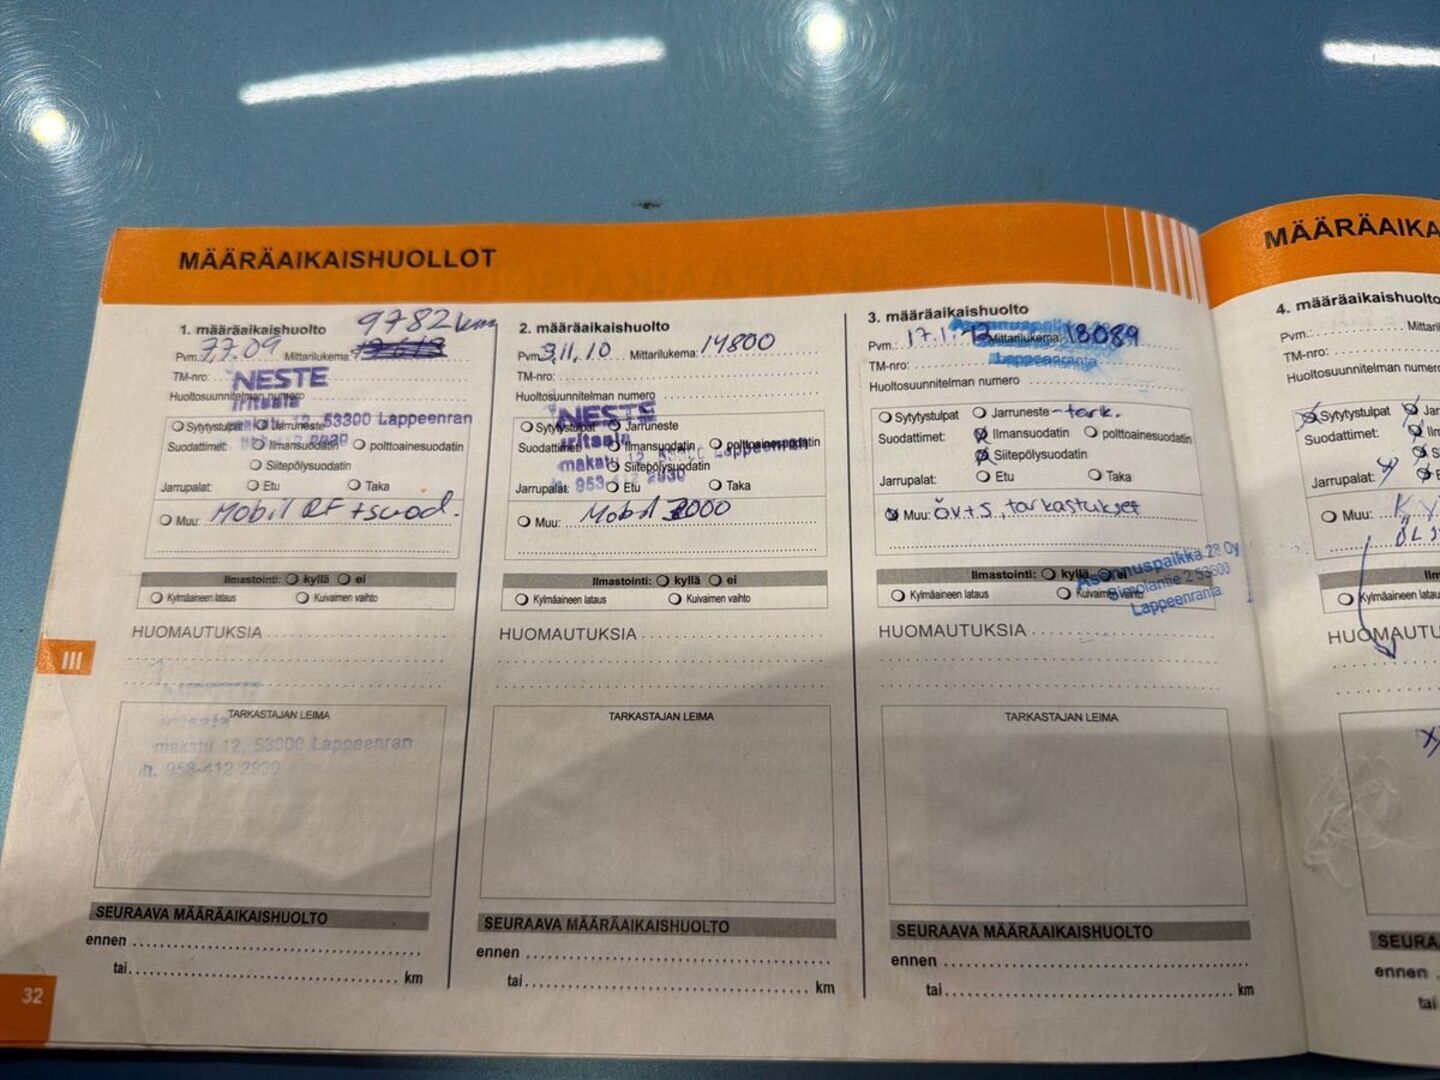 MÄÄRÄAIKAISHUOLLOT
1. määräaikaishuolto 9782 km
Pvm. 7.7.09 Mittarilukema:
TM-nro:
NESTE
Huoltosuunnitelman numero
makatu 12, 53300 Lappeenran
Sytytystulpat Jarruneste
Suodattimet: Ilmansuodatin polttoainesuodatin
Siitepölysuodatin
Jarrupalat: Etu Taka
Muu: Mobil RF + suod.
Ilmastointi: kyllä ei
Kylmäaineen lataus Kuivaimen vaihto
HUOMAUTUKSIA
TARKASTAJAN LEIMA
makatu 12, 53300 Lappeenran
h. 953-412 2930
SEURAAVA MÄÄRÄAIKAISHUOLTO
ennen
tai km
2. määräaikaishuolto
Pvm. 3.11.10 Mittarilukema: 14800
TM-nro:
Huoltosuunnitelman numero
NESTE
Sytytystulpat Jarruneste
Suodattimet: Ilmansuodatin polttoainesuodatin
makatu 12, 53300 Lappeenran
Siitepölysuodatin
953-412 2930
Jarrupalat: Etu Taka
Muu: Mobil 3000
Ilmastointi: kyllä ei
Kylmäaineen lataus Kuivaimen vaihto
HUOMAUTUKSIA
TARKASTAJAN LEIMA
SEURAAVA MÄÄRÄAIKAISHUOLTO
ennen
tai km
3. määräaikaishuolto
Pvm. 17.1. Mittarilukema: 18089
TM-nro: Lappeenranta
Huoltosuunnitelman numero
Sytytystulpat Jarruneste - tark.
Suodattimet: Ilmansuodatin polttoainesuodatin
Siitepölysuodatin
Jarrupalat: Etu Taka
Muu: öv+s, tarkastukset
Ilmastointi: kyllä ei
Asennuspaikka 28 Oy
Simolantie 2 53600
Lappeenranta
Kylmäaineen lataus Kuivaimen vaihto
HUOMAUTUKSIA
TARKASTAJAN LEIMA
SEURAAVA MÄÄRÄAIKAISHUOLTO
ennen
tai km
III
32
MÄÄRÄAIKA
4. määräaikaishuolto
Pvm.: Mittari
TM-nro:
Huoltosuunnitelman numero
Sytytystulpat Jar
Suodattimet: Il
S
Jarrupalat: E
Muu:
Ilm
Kylmäaineen lata
HUOMAUTU
SEURA
ennen
tai